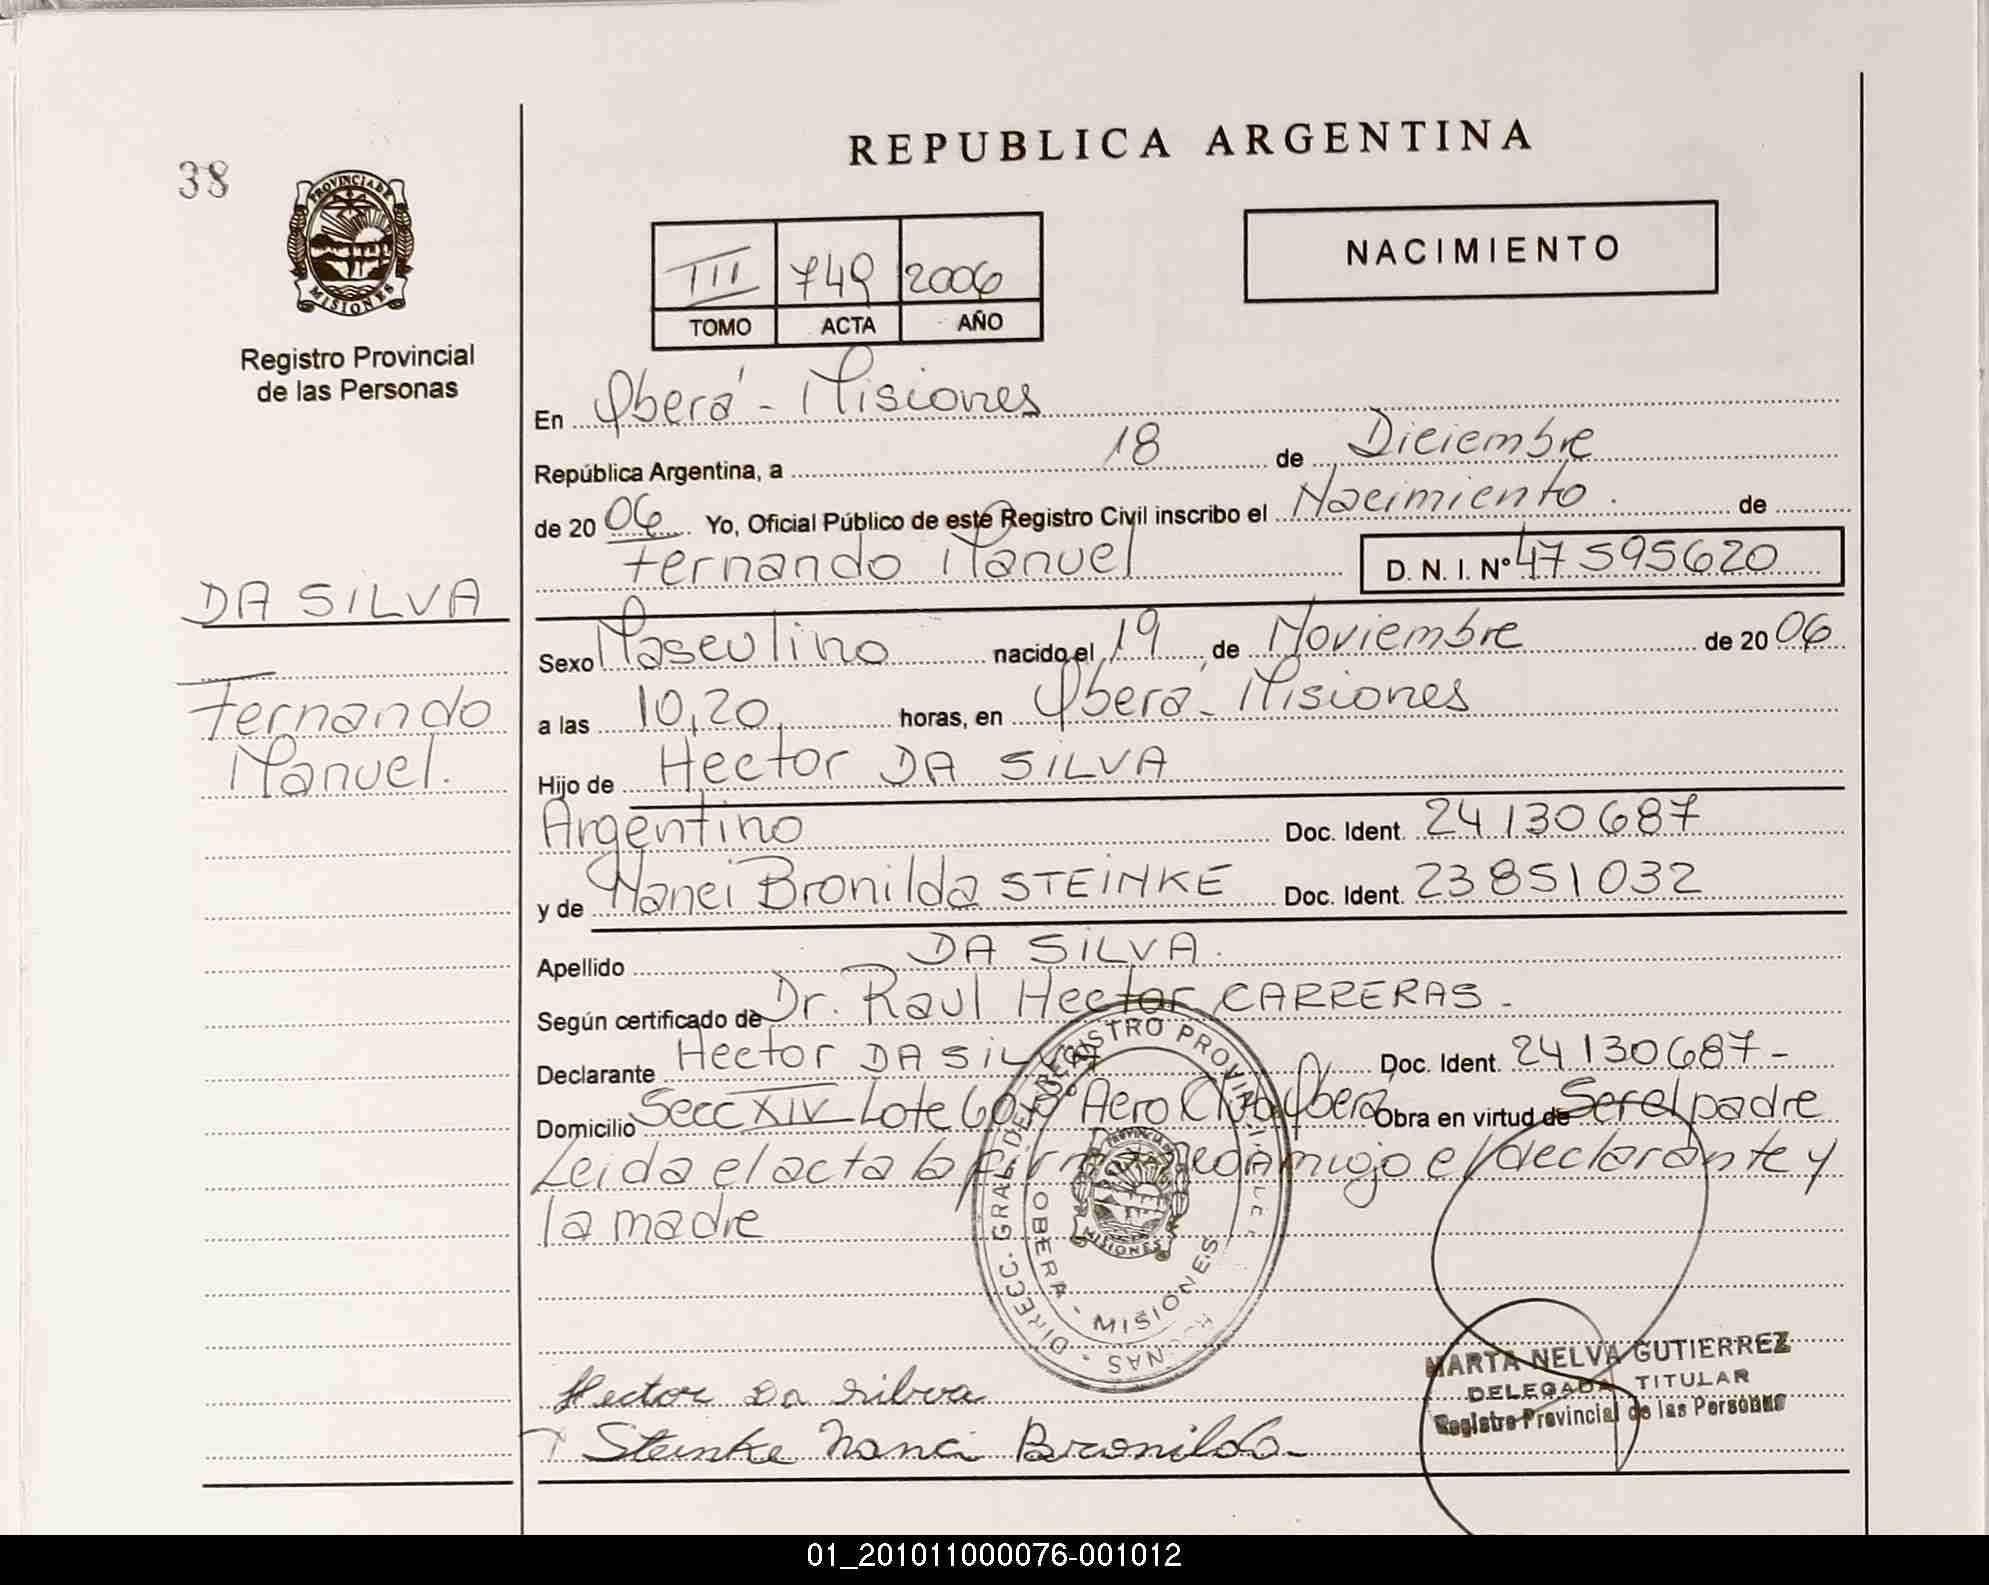 REPUBLICA ARGENTINA
38
PROVINCIA DE
MISIONES
Registro Provincial
de las Personas
III 749 2006
TOMO ACTA AÑO
NACIMIENTO
En Oberá - Misiones
República Argentina, a 18 de Diciembre
de 2006 Yo, Oficial Público de este Registro Civil inscribo el Nacimiento. de
Fernando Manuel D. N. I. Nº 47595620
DA SILVA
Fernando
Manuel.
Sexo Masculino nacido el 19 de Noviembre de 2006
a las 10,20 horas, en Oberá - Misiones
Hijo de Hector DA SILVA
Argentino Doc. Ident. 24130687
y de Nanci Bronilda STEINKE Doc. Ident. 23851032
Apellido DA SILVA.
Según certificado de Dr. Raul Hector CARRERAS -
Declarante Hector DA SILVA Doc. Ident. 24130687 -
Domicilio Secc XIV Lote Aero Club Oberá Obra en virtud de Ser el padre
Leida el acta la firman conmigo el declarante y
la madre
DIRECC. GRAL. DEL REGISTRO PROVINCIAL
OBERA - MISIONES
MISIONES
Hector Da silva
Steinke Nanci Bronilda
MARTA NELVA GUTIERREZ
DELEGADA TITULAR
Registro Provincial de las Personas
01_201011000076-001012